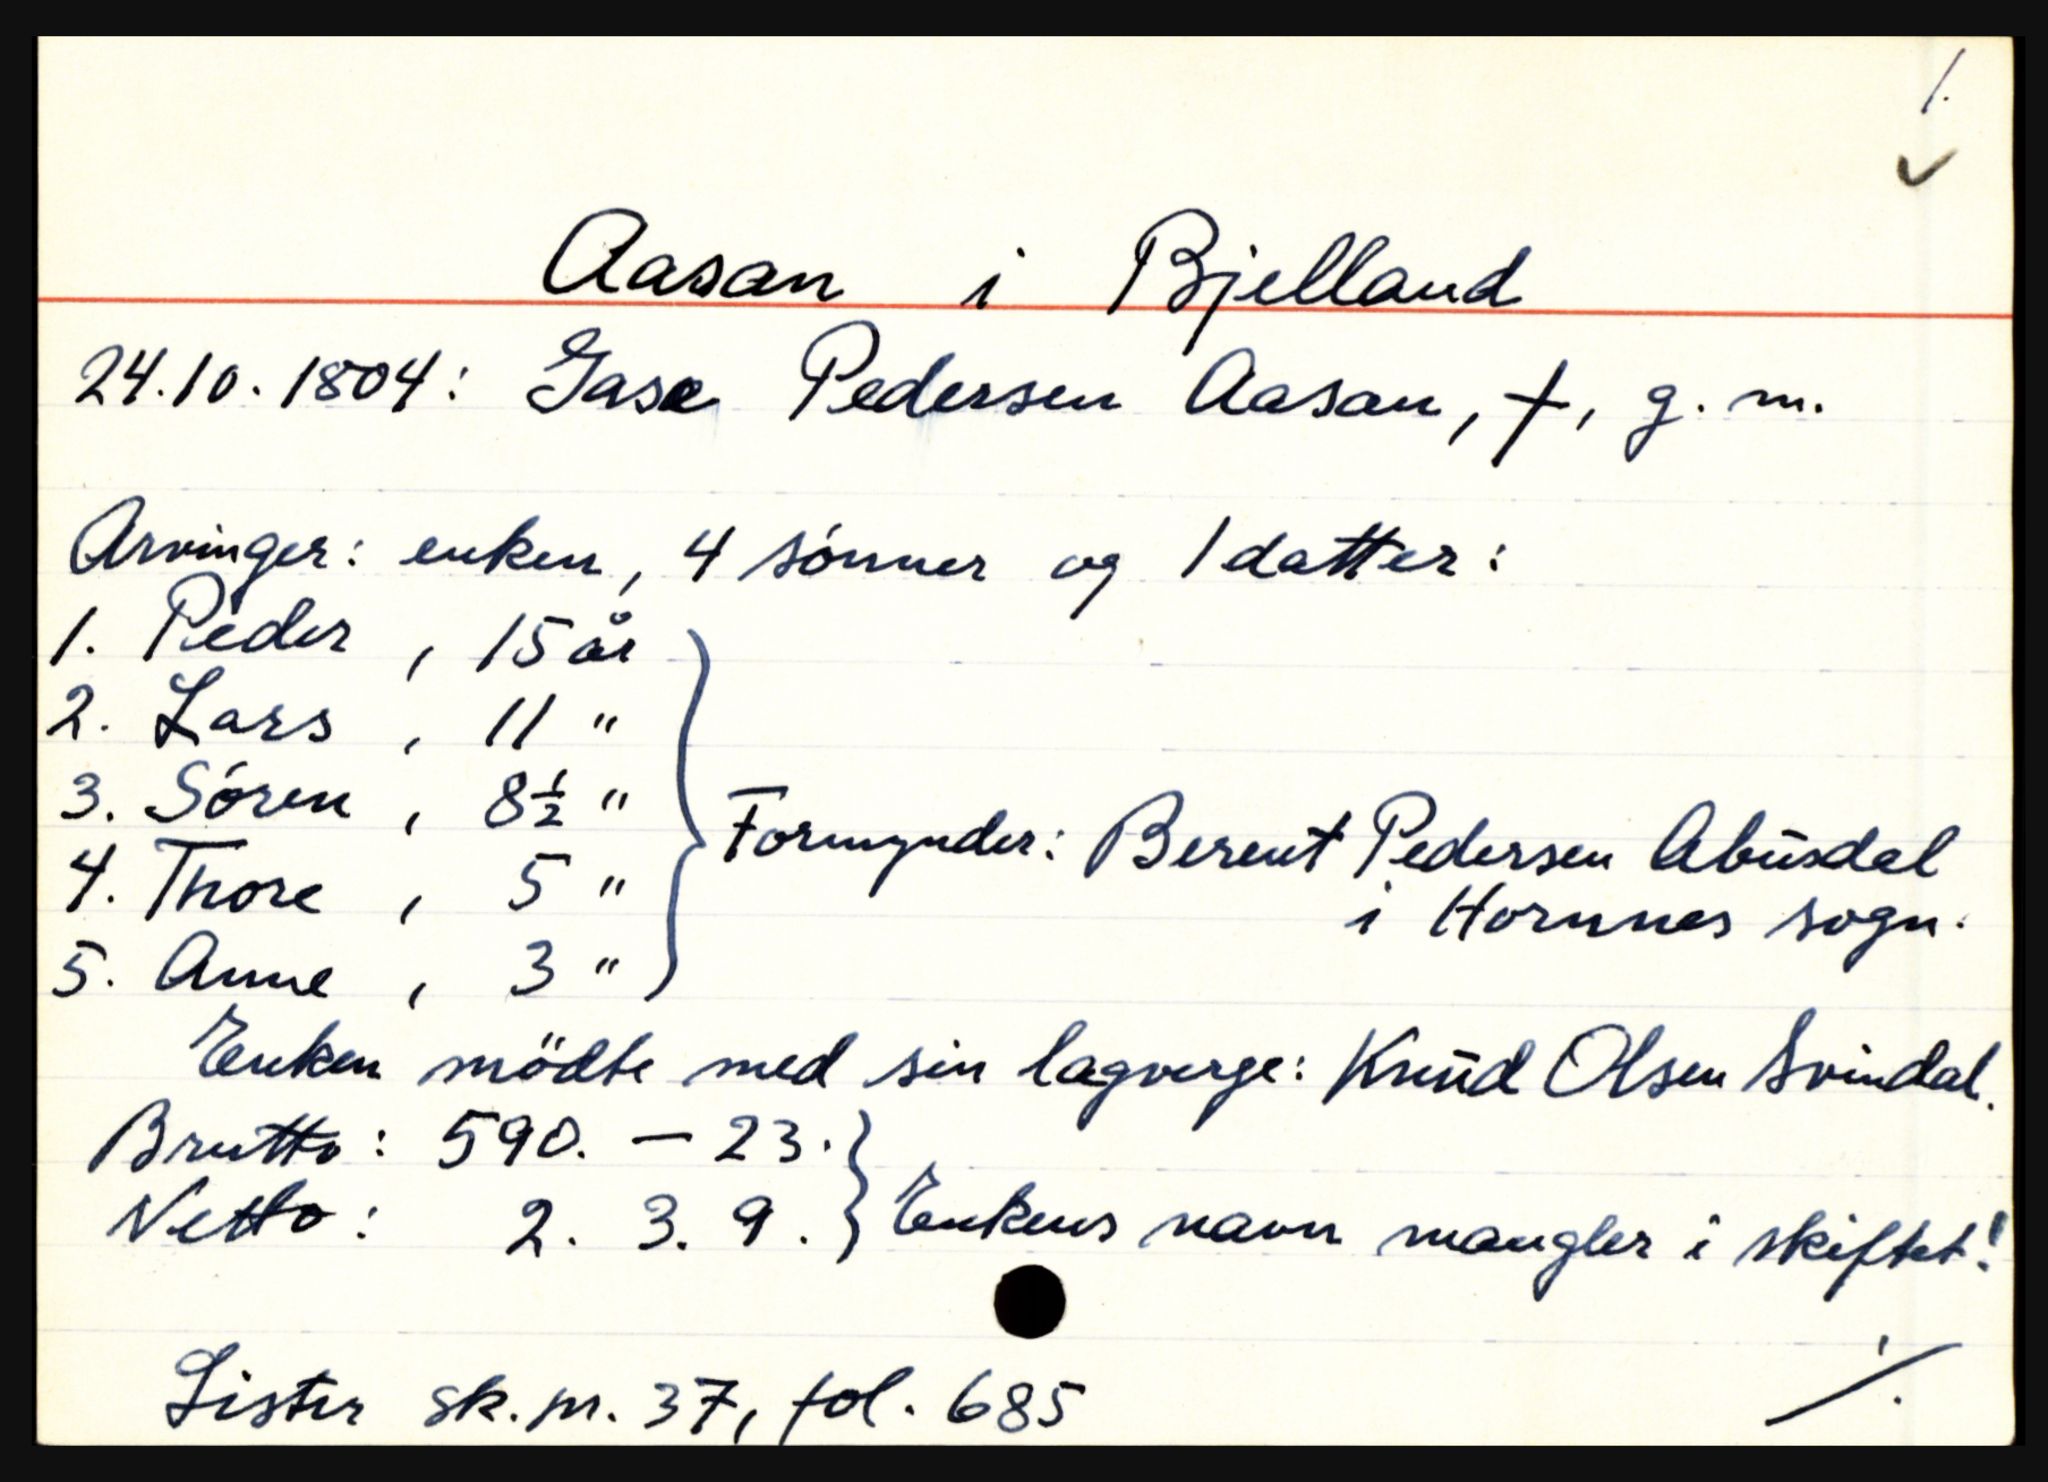 1.
Aasan i Bjelland
24.10.1804: Gase Pedersen Aasan, †, g. m.
Arvinger: enken, 4 sónner og 1 datter:
1. Peder, 15 år
2. Lars, 11 "
3. Sóren, 8½ "
4. Thore, 5 "
5. Anne, 3 "
Formynder: Berent Pedersen Abūsdal
i Hornnes sogn.
Enken mödte med sin lagverge: Knūd Olsen Svindal.
Brutto: 590. — 23.
Netto: 2. 3. 9.
Enkens navn mangler i skiftet!
Lister sk.pr. 37, fol. 685